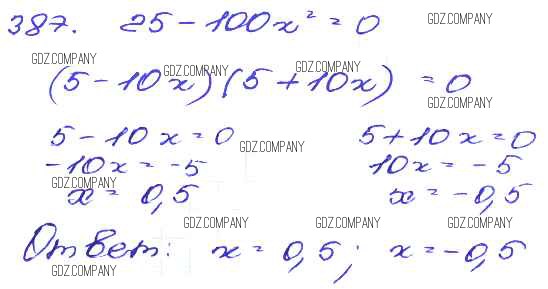 387. 25 - 100x² = 0
GDZ.COMPANY
GDZ.COMPANY
GDZ.COMPANY
(5 - 10x)(5 + 10x) = 0
GDZ.COMPANY
5 - 10x = 0 5 + 10x = 0
GDZ.COMPANY
-10x = -5 10x = -5
GDZ.COMPANY
x = 0,5 x = -0,5
GDZ.COMPANY GDZ.COMPANY GDZ.COMPANY
Ответ: x = 0,5; x = -0,5
GDZ.COMPANY